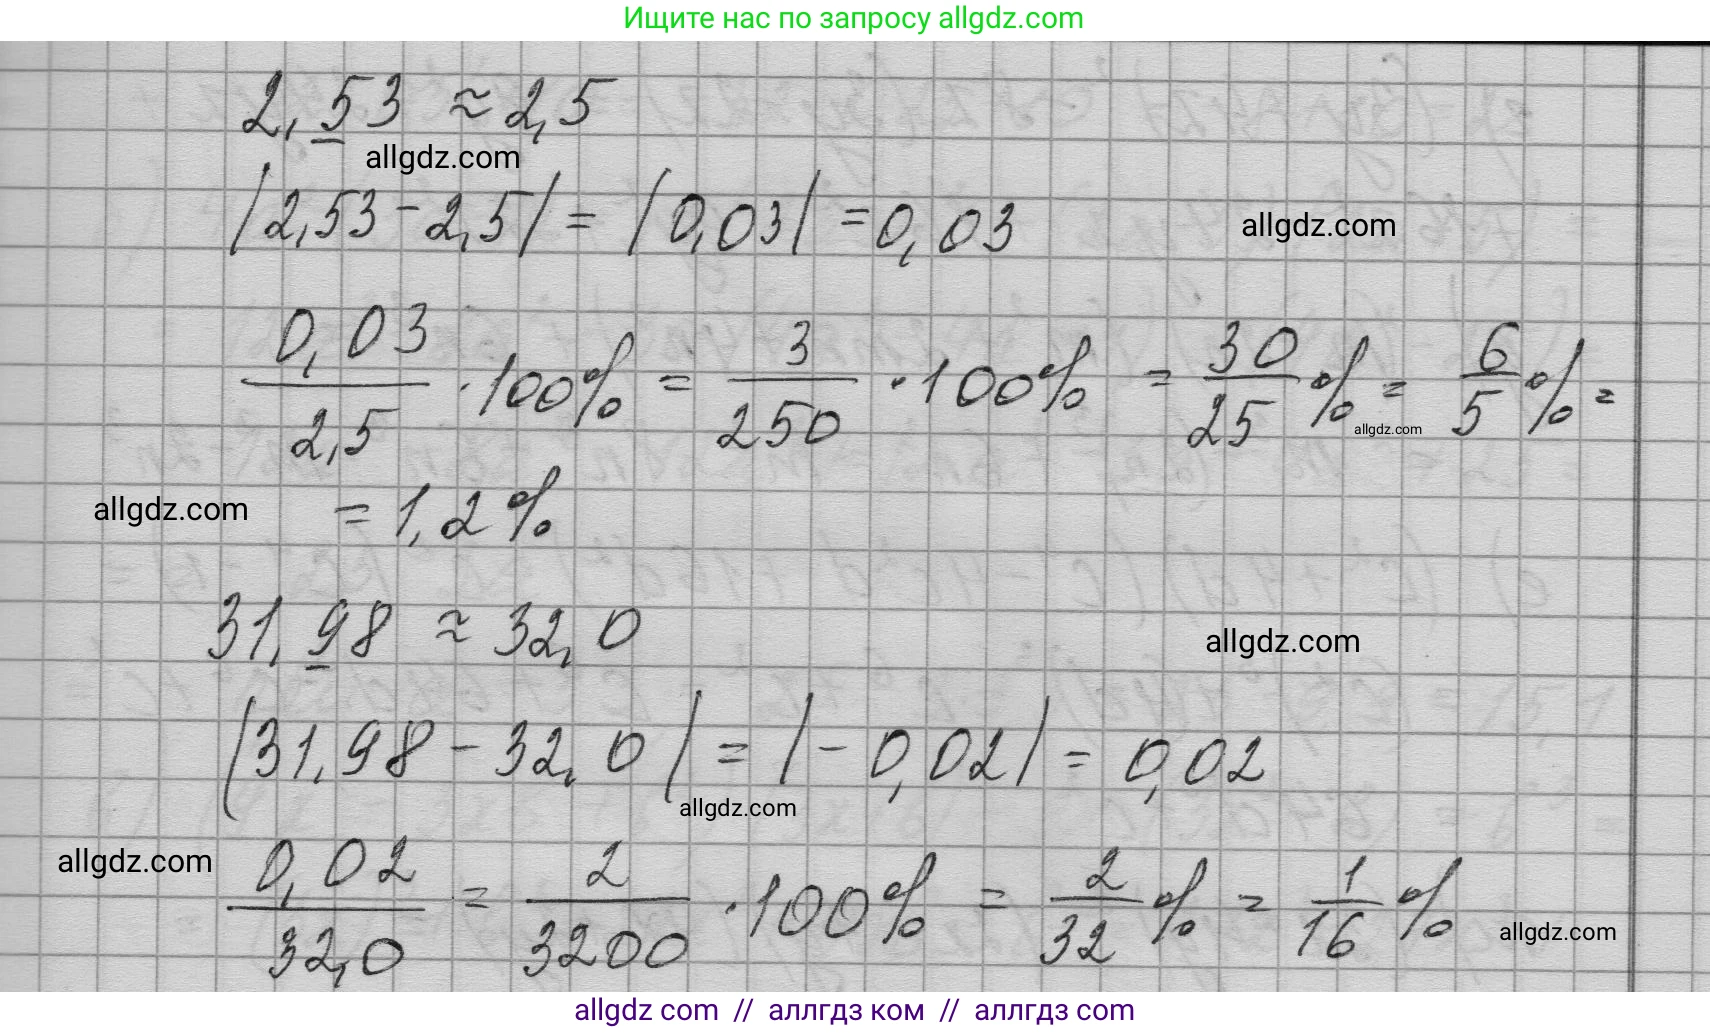 Ищите нас по запросу allgdz.com
2,53 ≈ 2,5
allgdz.com
|2,53 - 2,5| = |0,03| = 0,03
allgdz.com
0,03/2,5 · 100% = 3/250 · 100% = 30/25 % = 6/5 % =
allgdz.com
allgdz.com
= 1,2%
31,98 ≈ 32,0
allgdz.com
|31,98 - 32,0| = |-0,02| = 0,02
allgdz.com
allgdz.com
0,02/32,0 = 2/3200 · 100% = 2/32 % = 1/16 %
allgdz.com
allgdz com // аллгдз ком // аллгдз com